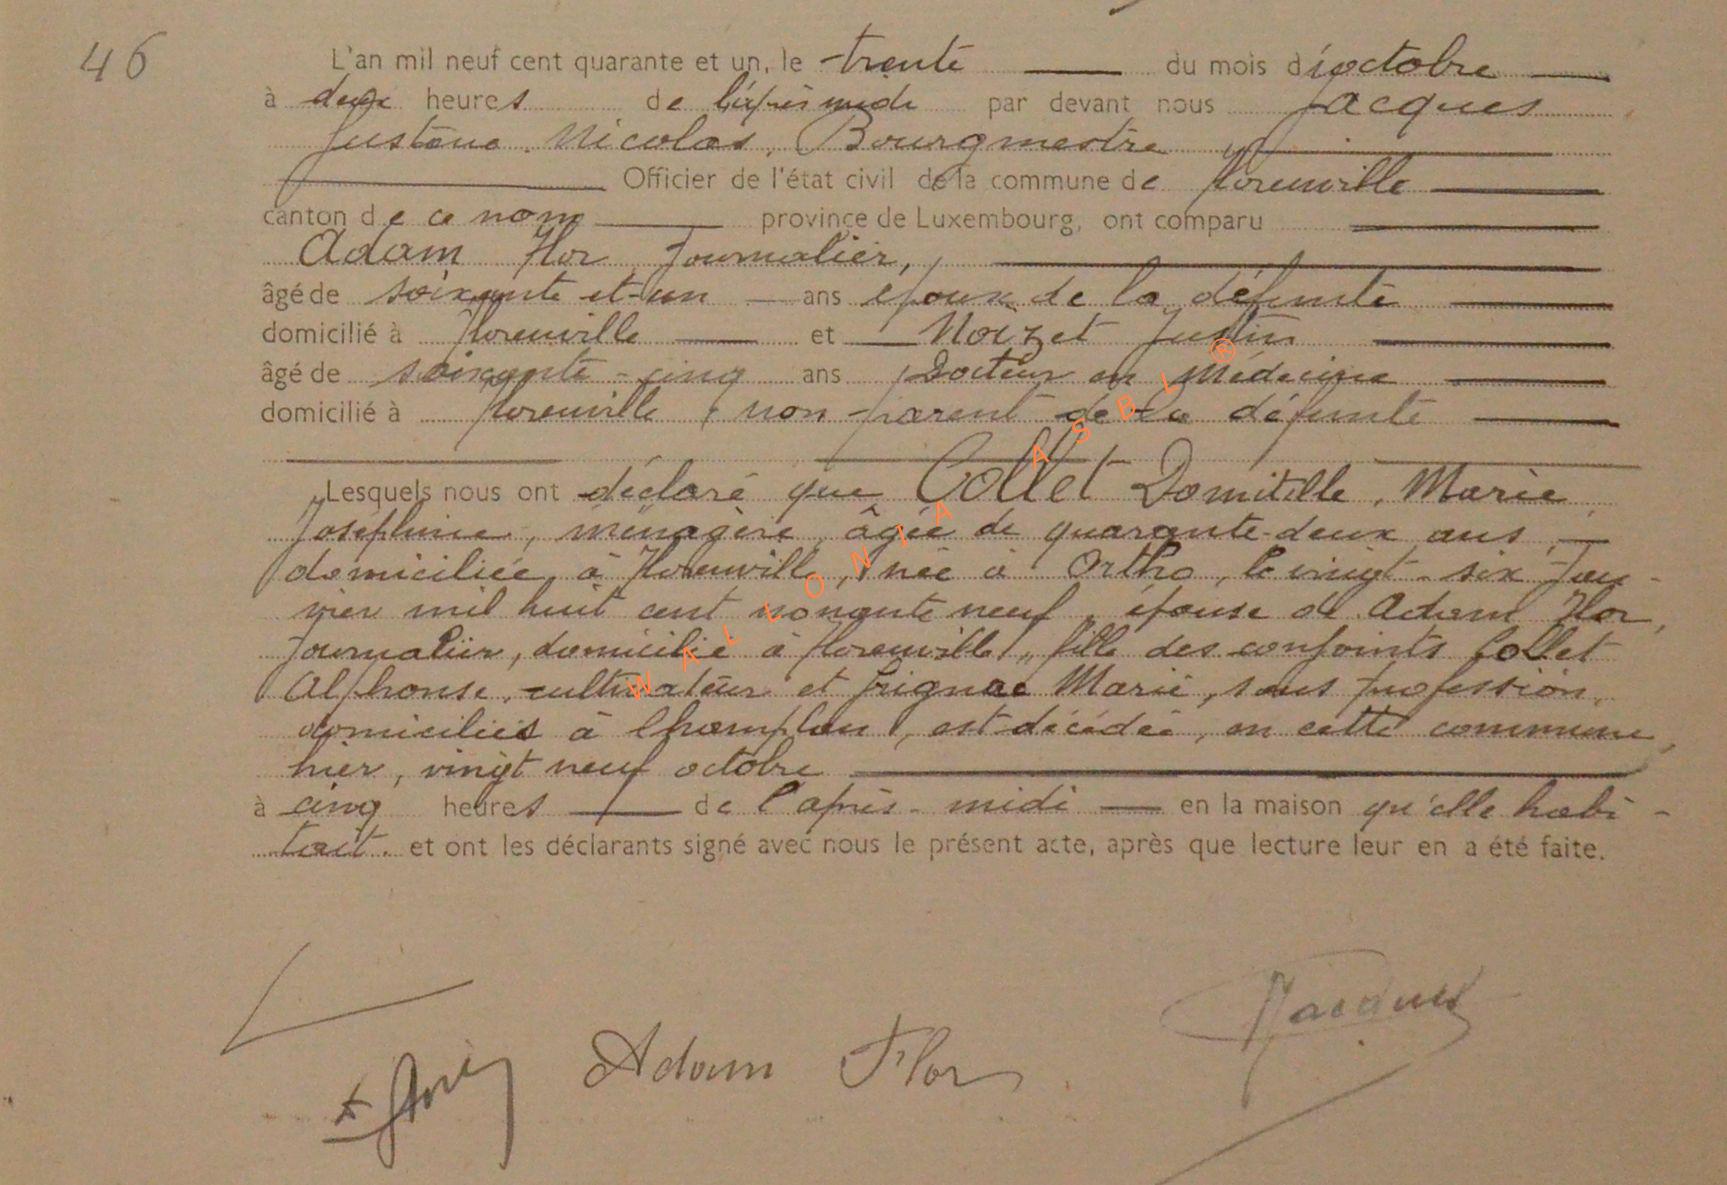 46
L'an mil neuf cent quarante et un, le trente du mois d'octobre
à deux heures de l'après midi par devant nous Jacques
Justène Nicolas, Bourgmestre
Officier de l'état civil de la commune de Florenville
canton de ce nom province de Luxembourg, ont comparu
Adam Flor, Journalier,
âgé de soixante et un ans époux de la défunte
domicilié à Florenville et Noizet Justin
âgé de soixante-cinq ans Docteur en Médecine
domicilié à Florenville, non parent de la défunte
Lesquels nous ont déclaré que Collet Domitille, Marie,
Joséphine, ménagère, âgée de quarante-deux ans,
domiciliée à Florenville, née à Ortho, le vingt-six Jan-
vier mil huit cent nonante neuf, épouse de Adam Flor,
Journalier, domicilié à Florenville, fille des conjoints Collet
Alphonse, cultivateur et Marie, sans profession,
domiciliés à Champlon, est décédée, en cette commune,
hier, vingt neuf octobre
à cinq heures de l'après-midi en la maison qu'elle habi-
tait. et ont les déclarants signé avec nous le présent acte, après que lecture leur en a été faite.
Jacques
Adam Flor
WALLONIA ASBL ®